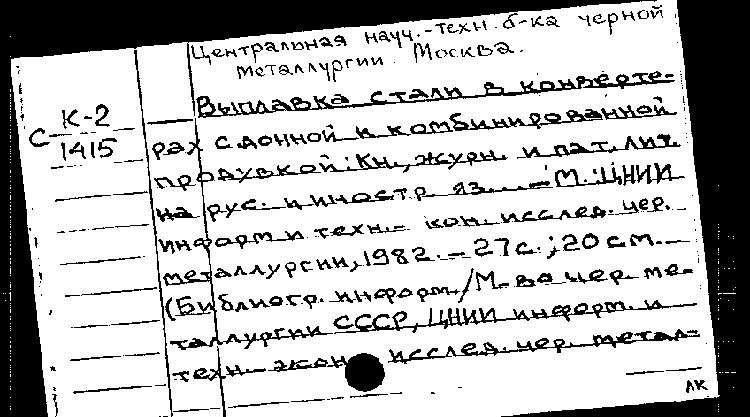 Центральная науч.-техн. б-ка черной
металлургии. Москва.
К-2
С 1415
Выплавка стали в конверте-
рах с донной и комбинированной
продувкой: Кн., журн. и пат. лит.
на рус. и иностр. яз... - М.: ЦНИИ
информ и техн.- кон. исслед. чер.
металлургии, 1982. - 27 с.; 20 см. -
(Библиогр. информ. / М-во чер. ме-
таллургии СССР, ЦНИИ информ. и
техн.-экон исслед. чер. метал-
ЛК